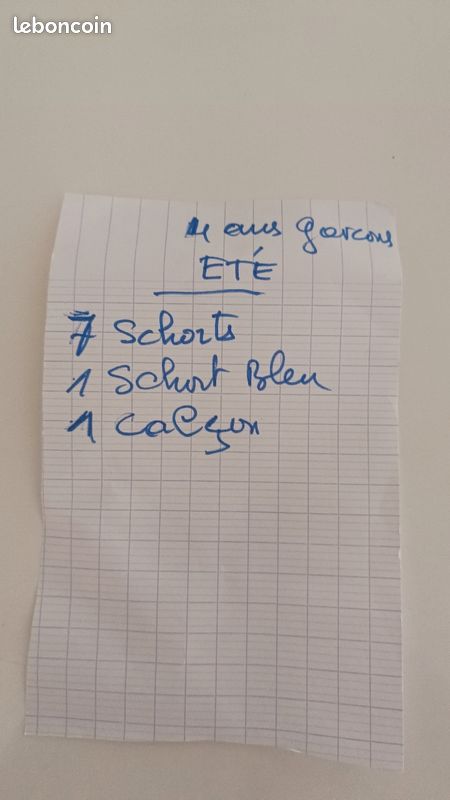 leboncoin
4 ans garcons
ETÉ
7 Schorts
1 Schort Bleu
1 Calçon